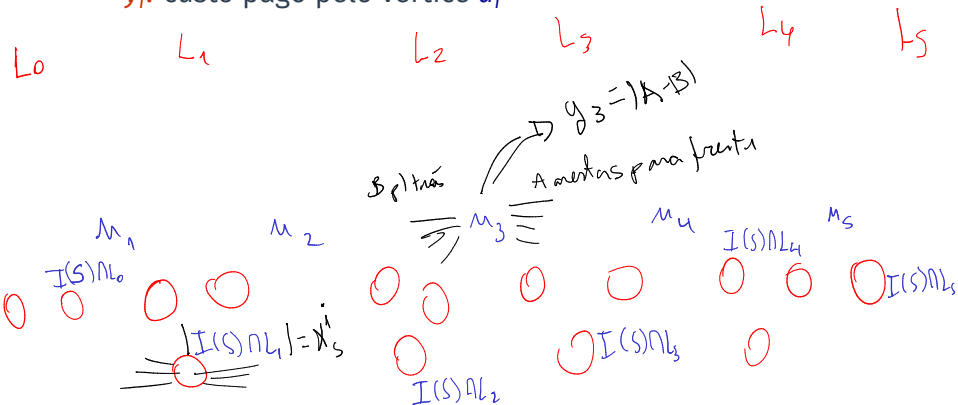 y_i: custo pago pelo vértice u_i
L0 L1 L2 L3 L4 L5
y3 = |A-B|
B p/ trás A arestas para frente
u1 u2 u3 u4 u5
I(S)∩L0 I(S)∩L4 I(S)∩L5
|I(S)∩L1| = I(S)∩L3
I(S)∩L2